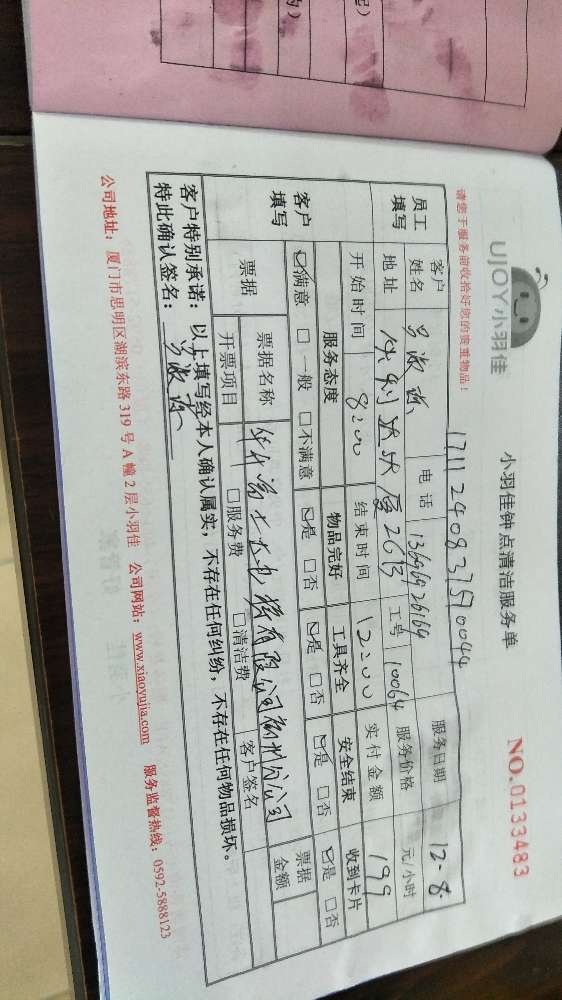 UJOY小羽佳
小羽佳钟点清洁服务单
NO.0133483
请您于服务前收拾好您的贵重物品！
17112408375170044
服务日期 12-8
员工填写
客户姓名
电话 13696926164
工号 10064
服务价格 元/小时
地址 2613
实付金额 199
开始时间 8:00
结束时间 12:00
客户填写
服务态度 物品完好 工具齐全 安全结束 收到卡片
☑满意 □一般 □不满意 ☑是 □否 ☑是 □否 ☑是 □否 ☑是 □否
票据
票据名称 有限公司 分公司
票据金额
开票项目 □服务费 □清洁费 客户签名
客户特别承诺：以上填写经本人确认属实，不存在任何纠纷，不存在任何物品损坏。
特此确认签名：
公司地址：厦门市思明区湖滨东路319号A幢2层小羽佳 公司网站：www.xiaoyujia.com 服务监督热线：0592-5888123